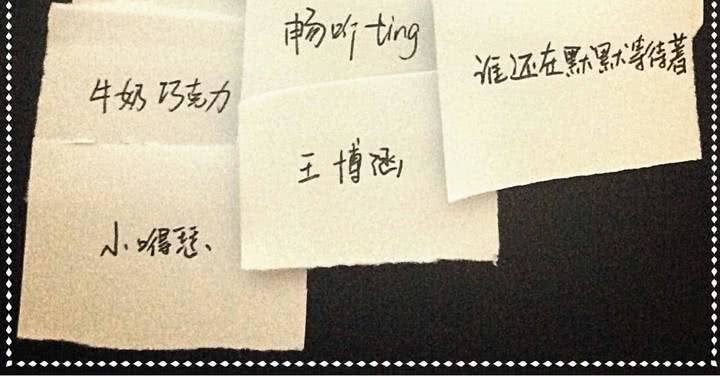 畅听ting
谁还在默默等待着
牛奶巧克力
王博涵
小嘚瑟